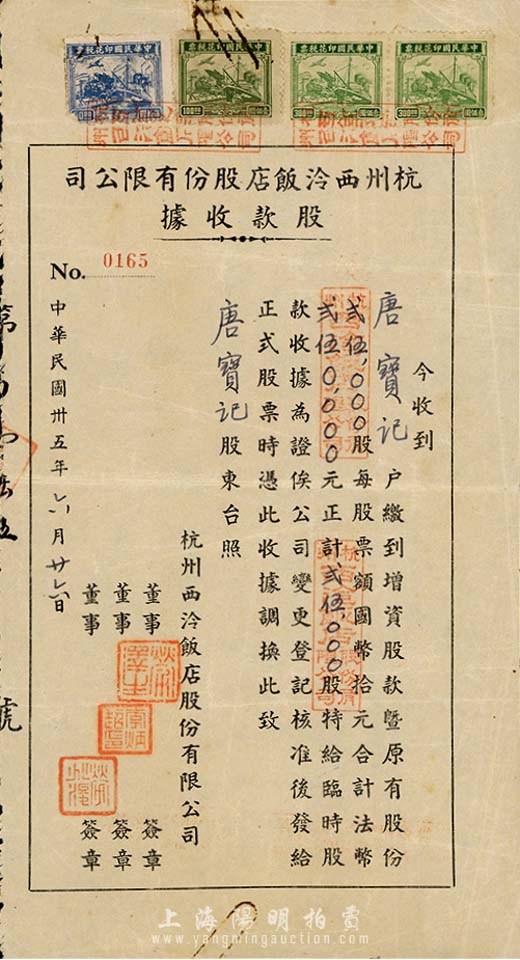 中華民國印花稅票
中華民國印花稅票
中華民國印花稅票
中華民國印花稅票
杭州西泠飯店股份有限公司
股款收據
No. 0165
今收到
唐寶記 户繳到增資股款暨原有股份
弍伍,000股每股票額國幣拾元合計法幣
弍伍0,000元正計弍伍,000股特給臨時股
款收據為證俟公司變更登記核准後發給
正式股票時憑此收據調換此致
唐寶記股東台照
杭州西泠飯店股份有限公司
董事 簽章
董事 簽章
董事 簽章
中華民國卅五年 月廿六日
號
上海陽明拍賣
www.yangmingauction.com